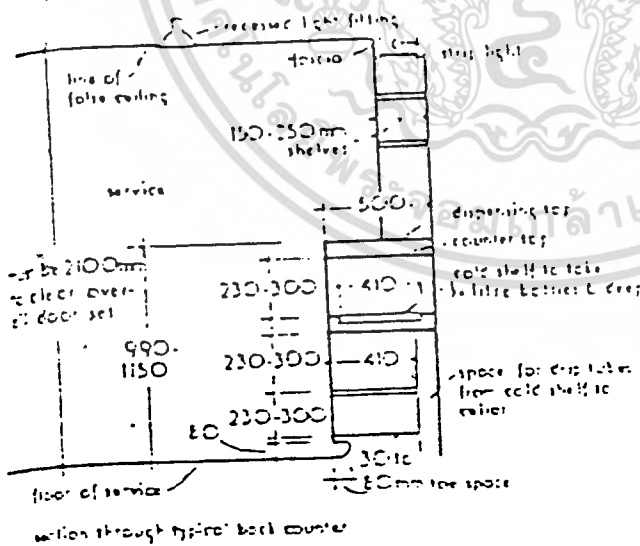 recessed light fitting
fascia
strip light
line of
false ceiling
150-250mm
shelves
service
500
dispensing top
counter top
be 2100mm
to clear over-
all door set
230-300
410
cold shelf to take
bottles 6 deep
990-
1150
230-300
410
space for drip tubes
from cold shelf to
cooler
230-300
80
30
80mm toe space
floor of service
section through typical back counter
พระจอมเกล้า